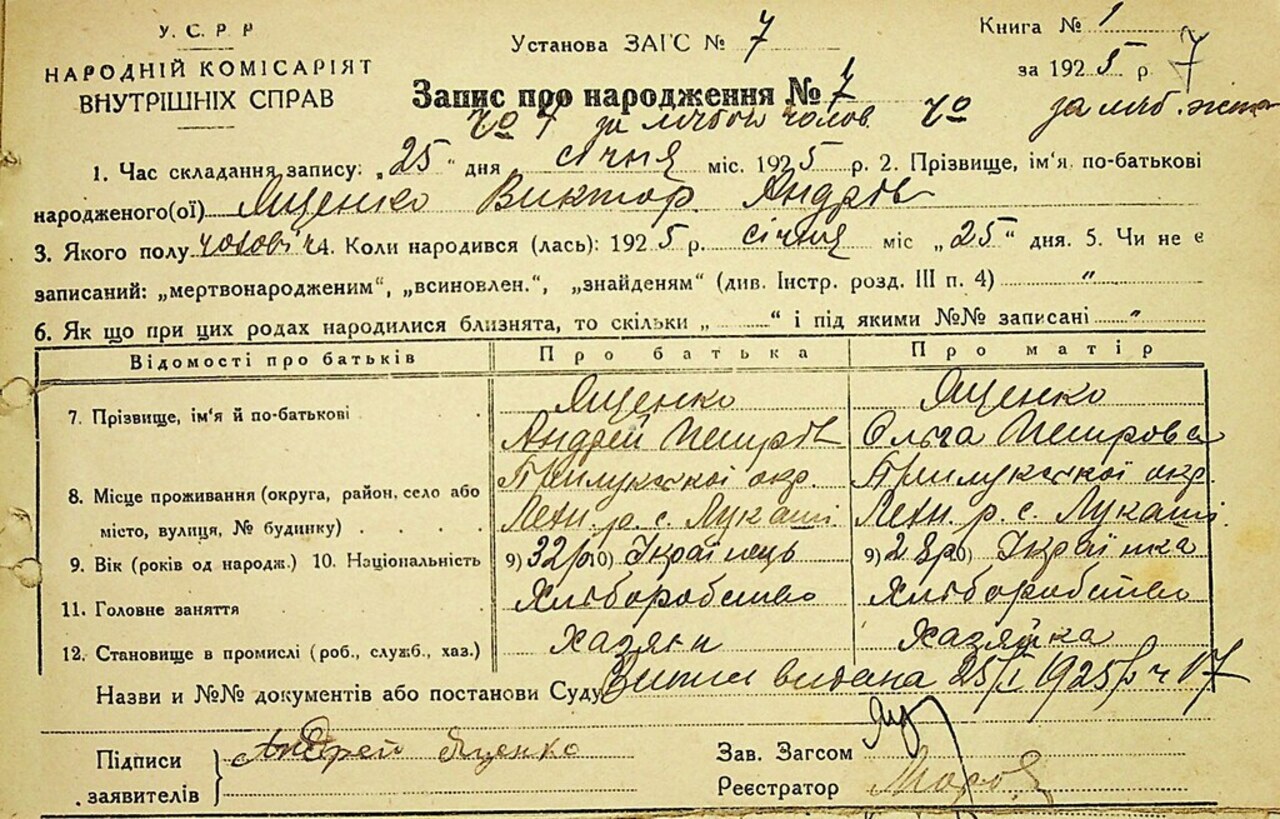 У. С. Р Р
НАРОДНІЙ КОМІСАРІЯТ
ВНУТРІШНІХ СПРАВ
Установа ЗАГС № 7
Книга № 1
за 1925 р. 7
Запис про народження № 7
за
1. Час складання запису: „25“ дня січня міс. 1925 р. 2. Прізвище, ім'я по-батькові
народженого(ої) Яценко Виктор Андрів
3. Якого полу чоловіч 4. Коли народився (лась): 1925 р. січня міс „25“ дня. 5. Чи не є
записаний: „мертвонародженим“, „всиновлен.“, „знайденям“ (див. Інстр. розд. III п. 4) „
6. Як що при цих родах народилися близнята, то скільки „ “ і під якими №№ записані „
Відомості про батьків Про батька Про матір
7. Прізвище, ім'я й по-батькові Яценко Яценко
Андрей Петрів Ольга Петрова
8. Місце проживання (округа, район, село або Прилукської окр. Прилукської окр.
місто, вулиця, № будинку) р. с. Лукаші р. с. Лукаші
9. Вік (років од народж.) 10. Національність 9) 32 р 10) Українець 9) 28 р 10) Українка
11. Головне заняття Хліборобство Хліборобство
12. Становище в промислі (роб., служб., хаз.) Хазяин Хазяйка
Назви и №№ документів або постанови Суду видана 25/I 1925 р ч 17
Підписи Андрей Яценко Зав. Загсом
заявителів Реєстратор